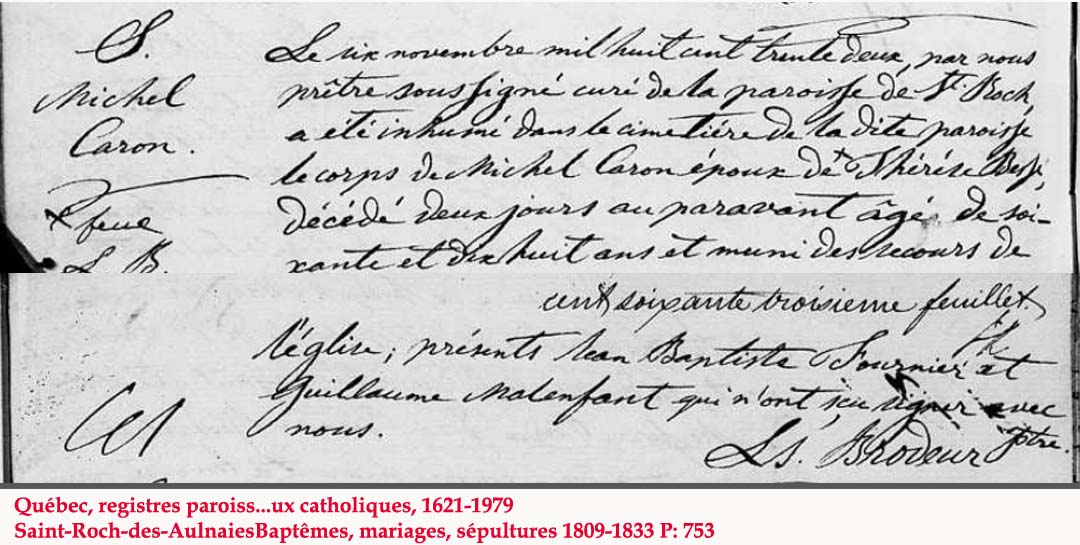 S.
Michel
Caron.
+ feue
L. B.
Le six novembre mil huit cent trente deux, par nous
prêtre soussigné curé de la paroisse de St. Roch,
a été inhumé dans le cimetière de la dite paroisse
le corps de Michel Caron époux de + Thérèse
décédé deux jours au paravant âgé de soi-
xante et dix huit ans et muni des secours de
cent soixante troisieme feuillet.
l'église; présents Jean Baptiste Fournier et
Guillaume Malenfant qui n'ont sçu signer avec
nous.
Ls. Brodeur Ptre.
Québec, registres paroiss...ux catholiques, 1621-1979
Saint-Roch-des-AulnaiesBaptêmes, mariages, sépultures 1809-1833 P: 753